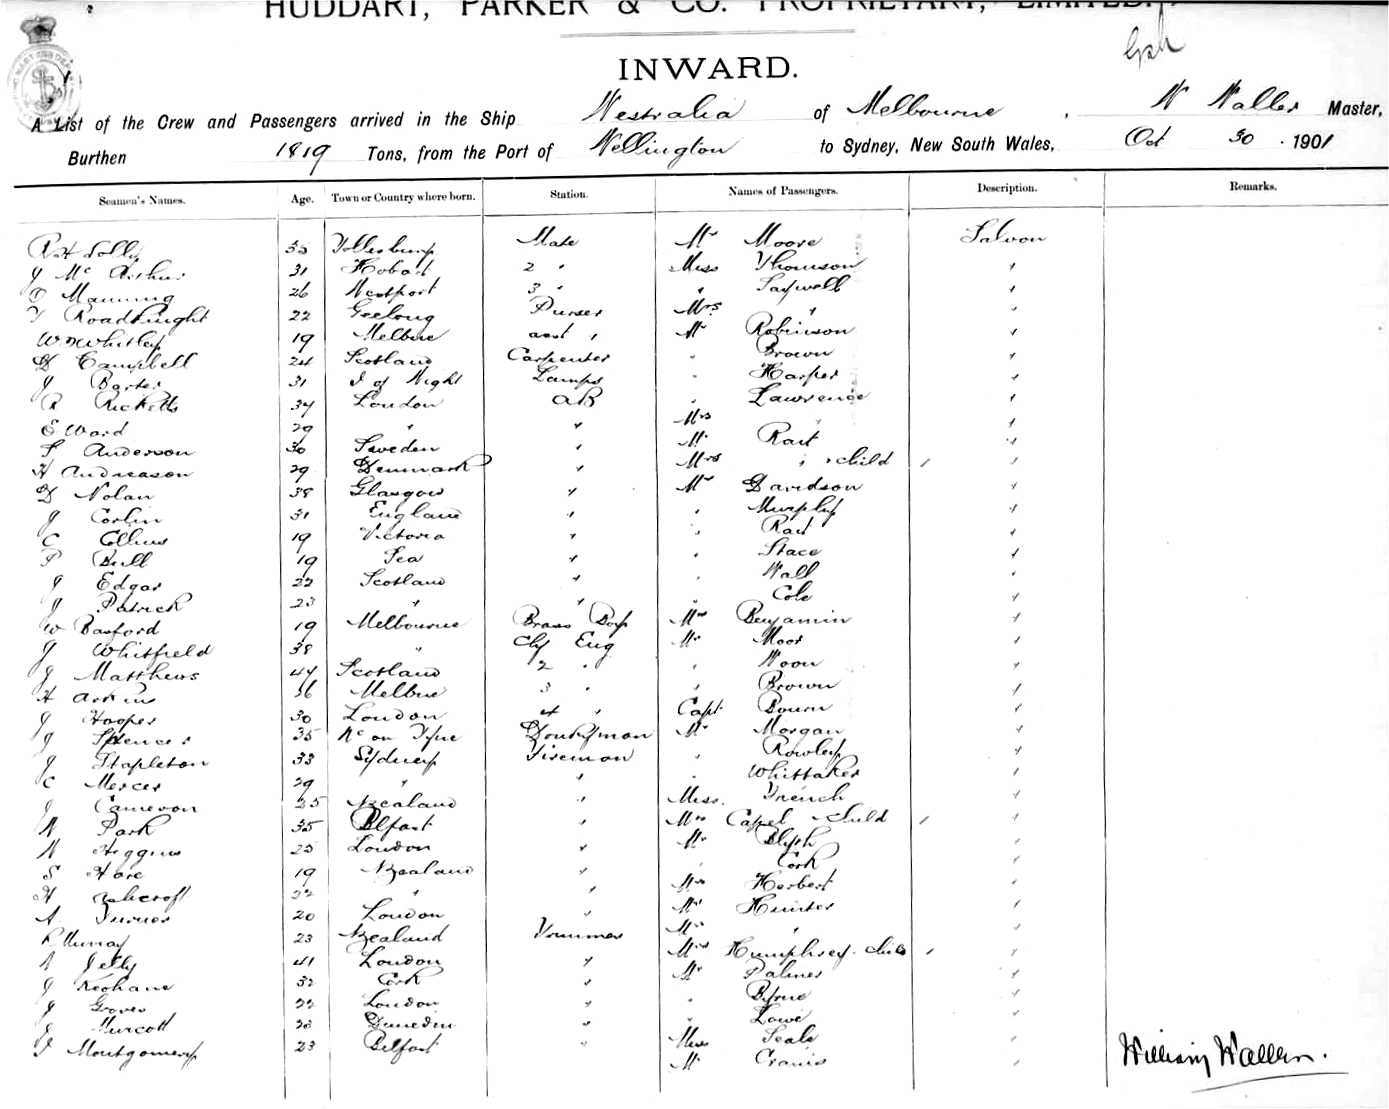 HUDDART, PARKER & CO. PROPRIETARY, LIMITED.
INWARD.
A List of the Crew and Passengers arrived in the Ship Westralia of Melbourne, W Waller Master,
Burthen 1819 Tons, from the Port of Wellington to Sydney, New South Wales, Oct 30 1901
Seamen's Names. Age. Town or Country where born. Station. Names of Passengers. Description. Remarks.
R H Solly 35 Tollesbury Mate Mr Moore Saloon
J McArthur 31 Hobart 2 " Miss Thomson "
Manning 26 Westport 3 " " Saywell "
T Roadknight 22 Geelong Purser Mrs " "
W Whitley 19 Melbne asst " Mr Robinson "
D Campbell 24 Scotland Carpenter " Brown "
J Barter 31 I of Wight Lamps " Harper "
R Ricketts 34 London AB " Lawrence "
E Ward 29 " " Mrs " "
S Anderson 30 Sweden " Mr Rait "
H Andreason 29 Denmark " Mrs " & child / "
D Nolan 38 Glasgow " Mr Davidson "
J 31 England " " Murphy "
C Collins 19 Victoria " " Rait "
P Bull 19 Sea " " Stace "
J Edgar 22 Scotland " " Wall "
J Patrick 23 " " " Cole "
W Basford 19 Melbourne Brass Boy Mrs Benjamin "
J Whitfield 38 " Chf Eng Mr Moor "
J Matthews 44 Scotland 2 " " Noon "
H 36 Melbne 3 " " Brown "
J Hooper 30 London 4 " Capt Bourn "
J Spencer 35 Nc on Tyne Donkeyman Mr Morgan "
J Stapleton 33 Sydney Fireman " Rowley "
C Mercer 29 " " " Whittaker "
J Cameron 25 NZealand " Miss French "
W Park 35 Belfast " Mrs Capel & child / "
W Higgins 25 London " Mr Blyth "
S Hare 19 NZealand " " Cork "
H Ashcroft 22 " " Mrs Herbert "
A Turner 20 London " Mr Hunter "
R Murray 23 NZealand Trimmer Mrs " "
A Jelly 41 London " Mrs Humphrey & child / "
J Keohane 32 Cork " Mr Palmer "
J Groves 22 London " " Byrne "
J Murcott 23 Dunedin " " Lowe "
J Montgomery 23 Belfast " Miss Seale "
Mr "
William Waller.